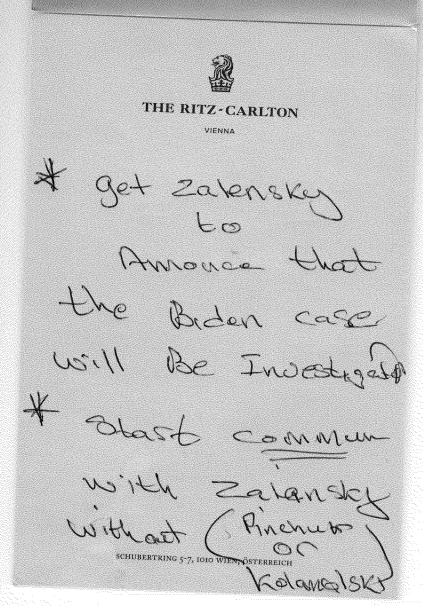 THE RITZ-CARLTON
VIENNA
* get Zalensky
to
Annouce that
the Biden case
will Be Investigated
* start commun
with Zalensky
without (Pinchuk
SCHUBERTRING 5-7, 1010 WIEN, ÖSTERREICH
or
Kolamolski)